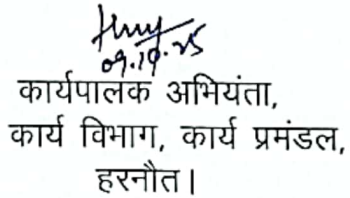 09.10.25
कार्यपालक अभियंता,
कार्य विभाग, कार्य प्रमंडल,
हरनौत।